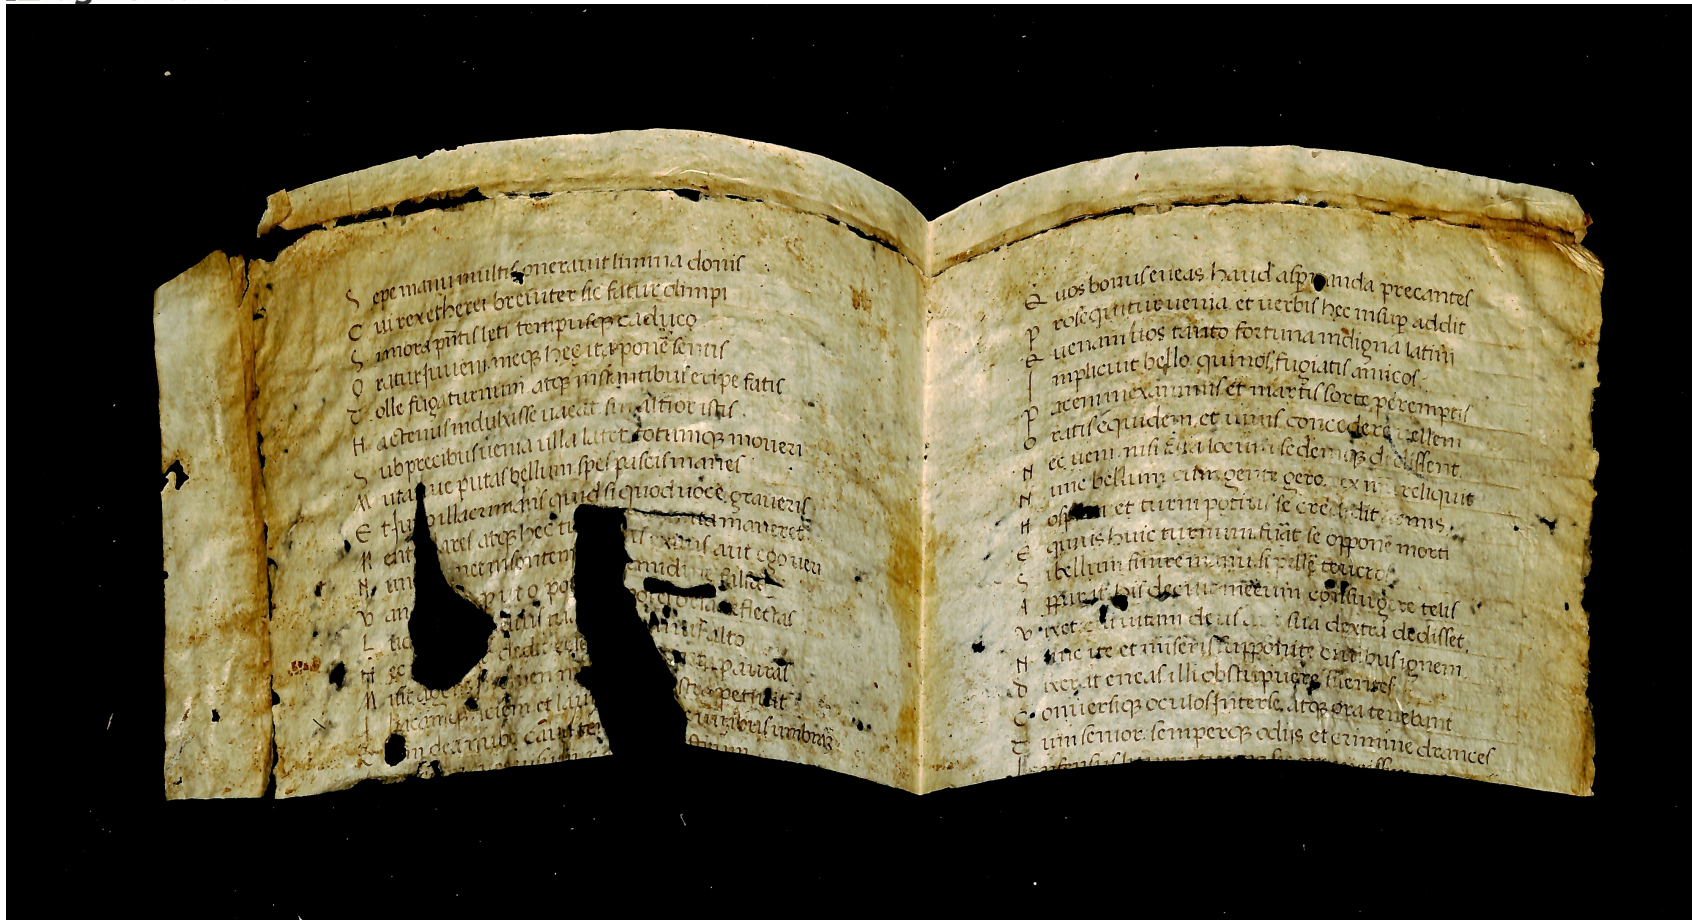 S epe manu multisq; onerauit limina donis
C ui rex etherei breuiter sic fatur olimpi
S i mora pñtis leti tempusq; caduco
O ratur iuueni meq; hec ita ponẽ sentis
T olle fuga turnum atq; instantibus eripe fatis
H actenus indulsisse uacat sin altior istis
S ub precibus uenia ulla latet totumq; moueri
M utariue putas bellum spes pascis inanes
E t iuno illacrimans quid si quod uoce graueris
M ent ares atq; hec tu ta maneret
N un net insontem is exitus aut ego ueri
V an ut o po midine falsa
L potes orsa reflectas
H ec dedit celo alto
M isit agens p auras
I liacamq; aciem et lau stra petiuit
T um dea nube caua ten uiribus umbrã
Q uos bonus eneas haud aspnanda precantes
P rosequitur uenia et uerbis hec insup addit
Q uenam uos tanto fortuna indigna latini
I mplicuit bello qui nos fugiatis amicos
P acem me exanimis et martis sorte peremptis
O ratis equidem et uiuis concedere uellem
N ec ueni nisi fata locum sedemq; dedissent
N unc bellum cum gente gero rex nr̃a reliquit
H ospi et turni potius se credidit armis
E quius huic turnum fuãt se opponẽ morti
S i bellum finire manu si pellẽ teucros
A pparat his decuit mecum consurgere telis
V ixet cui uitam deus aut sua dextra dedisset
N unc ite et miseris supponite ciuibus ignem
D ixerat eneas illi obstupuere silentes
C onuersiq; oculos inter se atq; ora tenebant
T um senior semperq; odijs et crimine drances